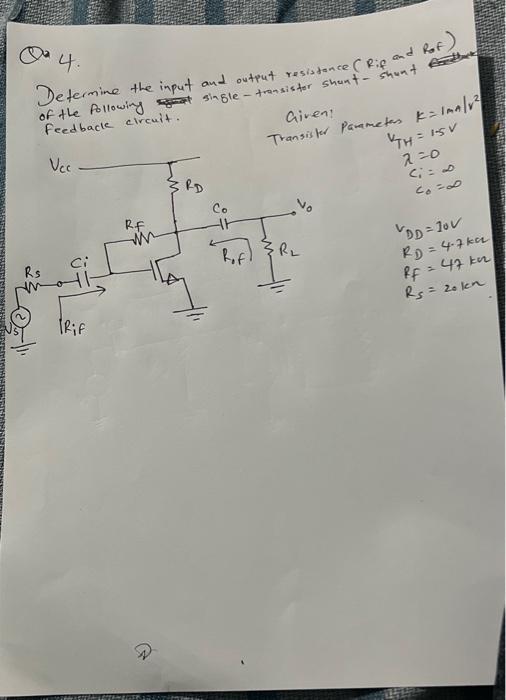 Q. 4.
Determine the input and output resistance (Rif and Rof)
of the following single-transistor shunt-shunt
feedback circuit.
Given:
Transistor Parameters K = 1mA/V²
VTH = 1.5V
λ = 0
Ci = ∞
Co = ∞
VDD = 10V
RD = 4.7kΩ
RF = 47 kΩ
Rs = 20kΩ
Vcc
RD
Co
Vo
RF
Rof
RL
Ci
Rs
Rif
Vs